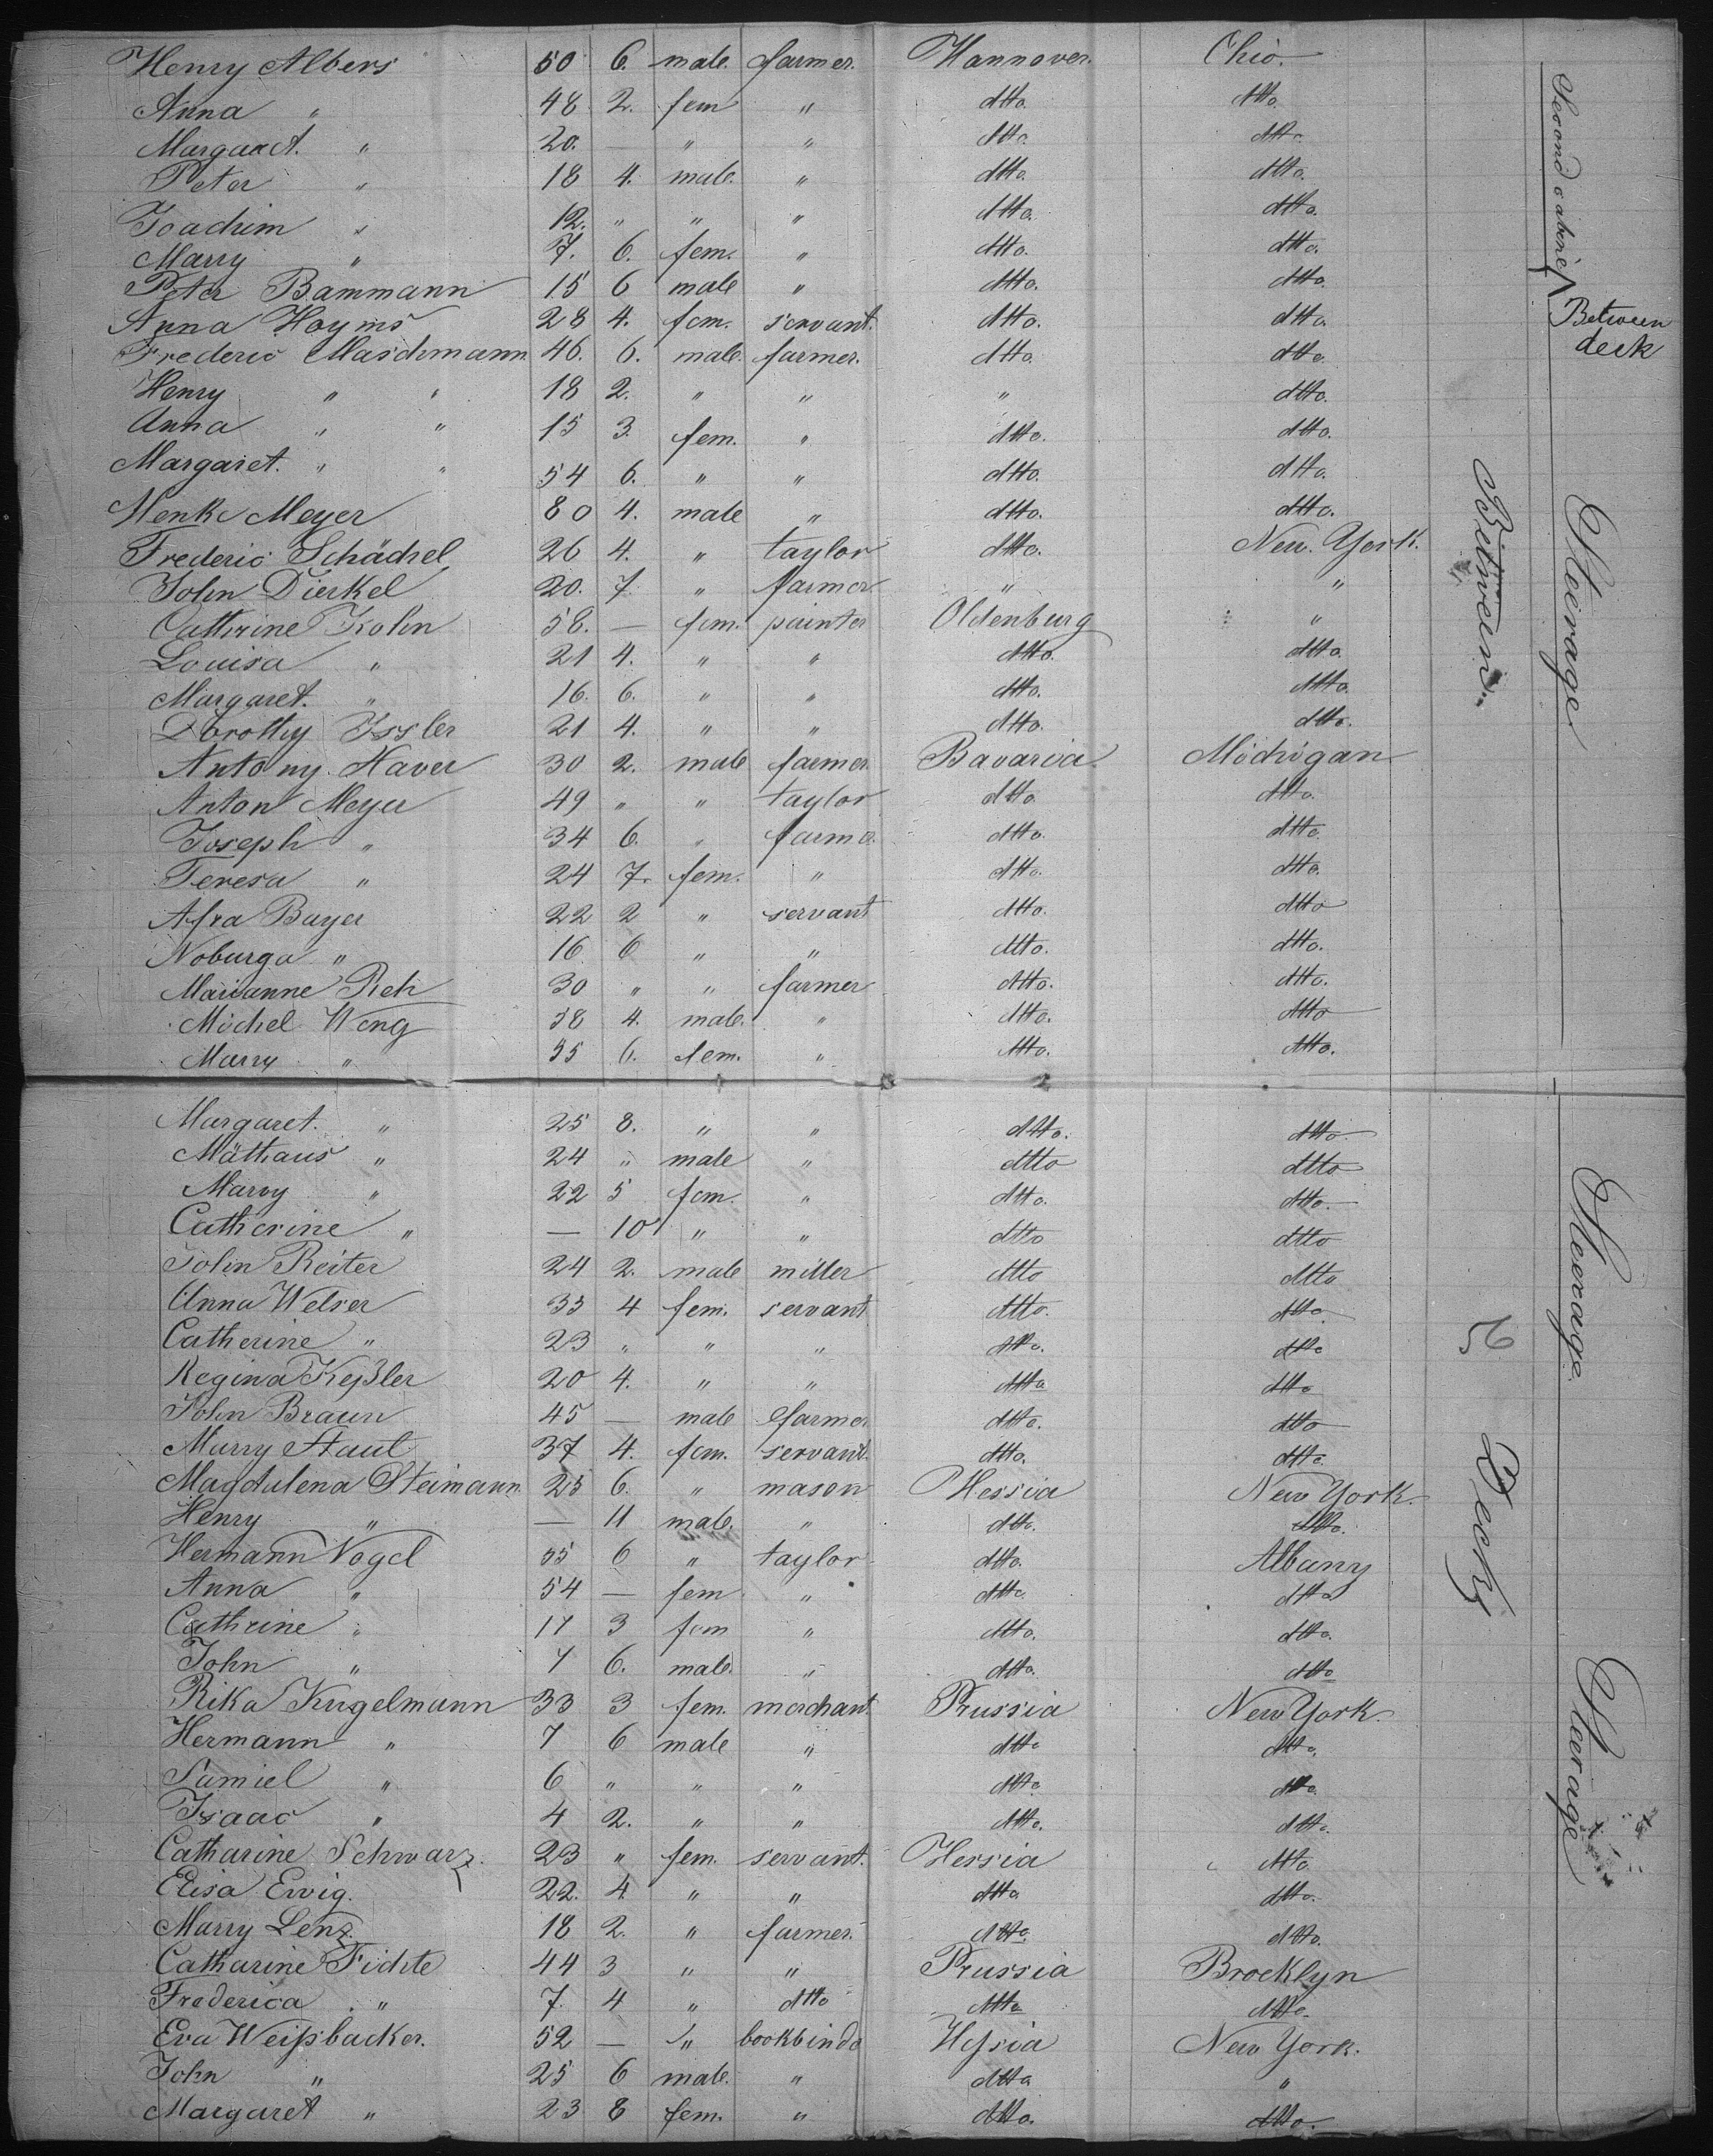 Henry Albers 50 6. male. farmer. Hannover. Ohio.
Anna " 48. 2. fem " dtto. dtto.
Margaret. " 20. " " dtto. dtto.
Peter " 18 4. male. " dtto. dtto.
Joachim " 12. " " " dtto. dtto.
Marry " 7. 6. fem. " dtto. dtto.
Peter Bammann 15 6 male " dtto. dtto.
Anna Hoyms 28 4. fem. servant. dtto. dtto.
Frederic Maschmann 46. 6. male. farmer. dtto. dtto.
Henry " " 18 2. " " " dtto.
Anna " " 15 3. fem. " dtto. dtto.
Margaret. " " 54 6. " " dtto. dtto.
Henke Meyer 80 4. male " dtto. dtto.
Frederic Schächel 26 4. " taylor dtto. New. York.
John Dierkel 20. 7. " farmer " "
Cathrine Kohn 58. — fem. painter Oldenburg "
Louisa " 21 4. " " dtto. dtto.
Margaret. " 16. 6. " " dtto. dtto.
Dorothy Issler 21 4. " " dtto. dtto.
Antony. Haver 30 2. male farmer. Bavaria. Michigan
Anton Meyer 49 " " taylor dtto. dtto.
Joseph " 34 6. " farmer. dtto. dtto.
Teresa " 24 7. fem. " dtto. dtto.
Afra Bayer 22 2 " servant dtto. dtto
Noburga " 16 6 " " dtto. dtto.
Marianne Reh 30 " " farmer dtto. dtto.
Michel Weng 38 4. male. " dtto. dtto
Marry " 35 6. fem. " dtto. dtto.
Margaret. " 25 8. " " dtto. dtto.
Mathaus " 24 " male " dtto dtto
Marry " 22 5 fem. " dtto. dtto.
Catherine " — 10 " " dtto dtto
John Reiter 24 2. male miller dtto dtto
Anna Welser 33 4 fem. servant dtto. dtto.
Catherine " 23 " " " dtto. dtto
Regina Keßler 20 4. " " dtto dtto
John Braun 45 — male farmer dtto. dtto
Marry Staut 37 4. fem. servant. dtto. dtto.
Magdalena Steimann 25 6. " mason Hessia New York.
Henry " — 11 male. " dtto. dtto.
Hermann Vogel 55 6 " taylor dtto. Albany
Anna " 54 — fem " dtto. dtto
Cathrine " 17 3 fem " dtto. dtto.
John " 7 6. male. " dtto. dtto
Rika Kugelmann 33 3 fem. merchant Prussia New York.
Hermann " 7 6 male " dtto dtto.
Samiel " 6 " " " dtto. dtto.
Isaac " 4 2. " " dtto. dtto.
Catharine Schwarz. 23 " fem. servant. Hessia dtto.
Elisa Ewig. 22. 4. " " dtto dtto.
Marry Lenz. 18 2. " farmer. dtto. dtto.
Catharine Fichte 44 3 " " Prussia Brocklyn
Frederica " 7. 4 " dtto dtto dtto.
Eva Weißbacker. 52 — " bookbinder Heßia New York.
John " 25 6 male. " dtto "
Margaret " 23 8 fem. " dtto. dtto.
Second cabine
Between
deck
Steerage
Between
Steerage
Deck
Steerage